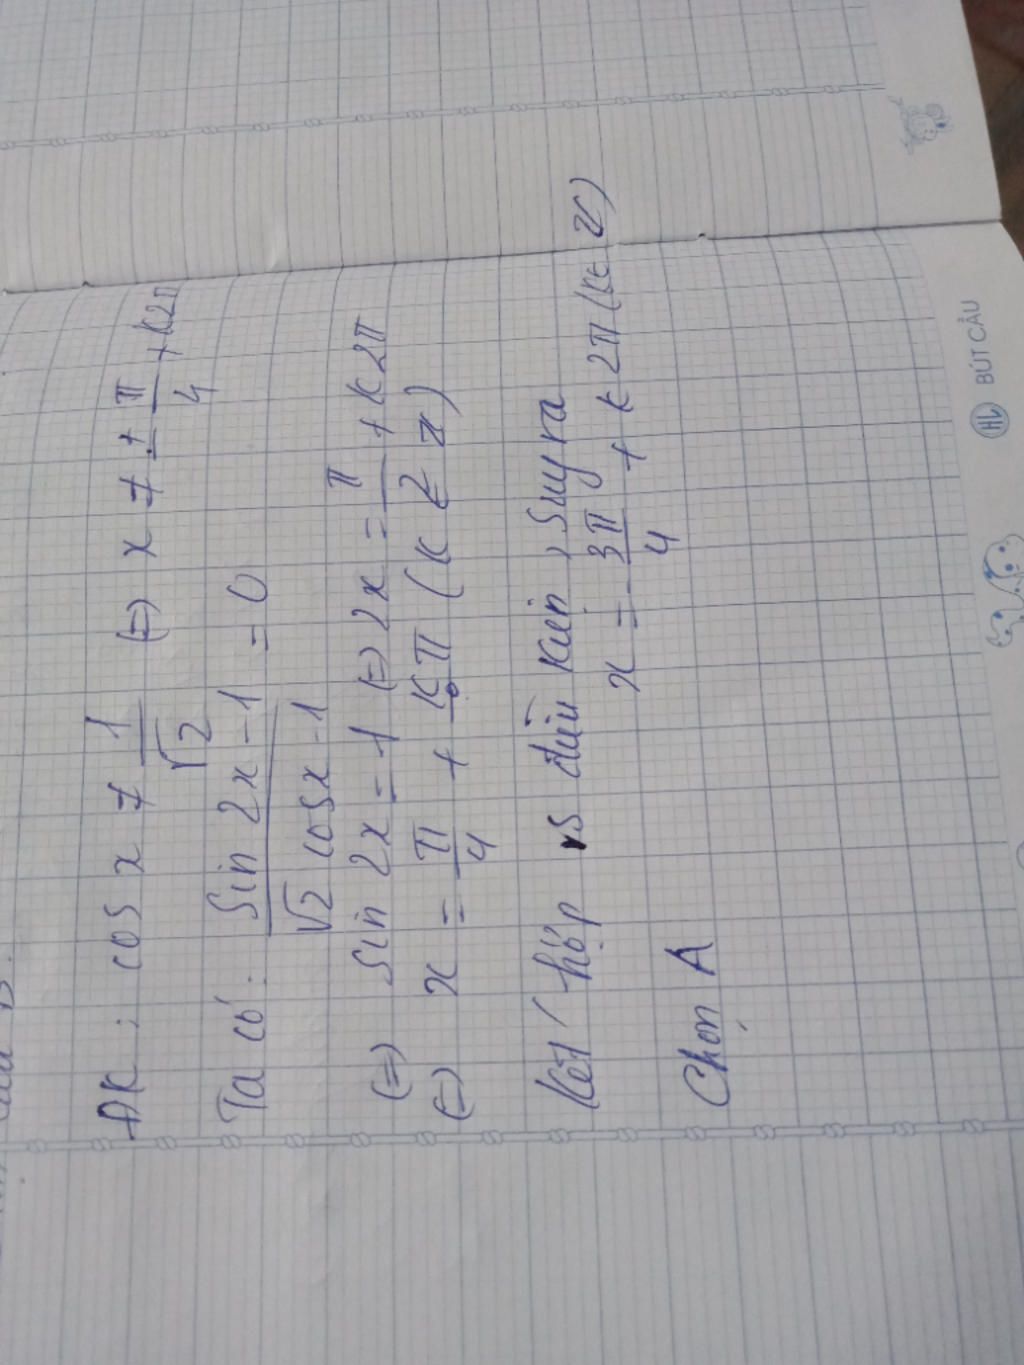 ĐK : cos x ≠ 1/√2 (=) x ≠ ± π/4 + k2π
Ta có : Sin 2x - 1 / √2 cosx - 1 = 0
(=) Sin 2x = 1 (=) 2x = π/2 + k2π
(=) x = π/4 + kπ (k Z)
Kết hợp vs điều kiện, Suy ra
x = 3π/4 + k2π (k∈ Z)
Chọn A
HL BÚT CẦU